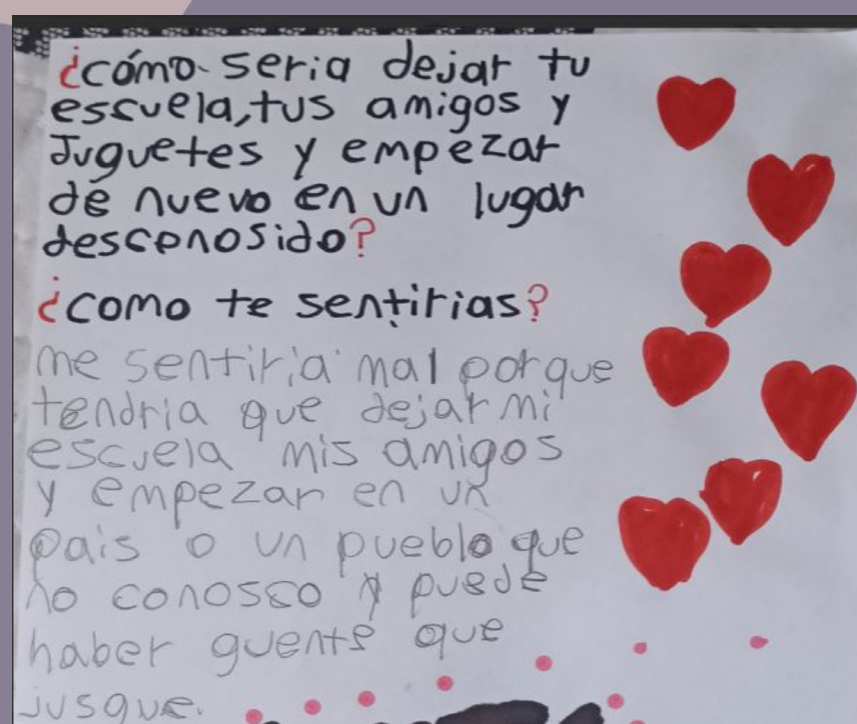 ¿cómo seria dejar tu
escuela, tus amigos y
Juguetes y empezar
de nuevo en un lugar
desconosido?
¿como te sentirias?
me sentiria mal porque
tendria que dejar mi
escuela mis amigos
y empezar en un
pais o un pueblo que
no conosco y puede
haber guente que
jusgue.